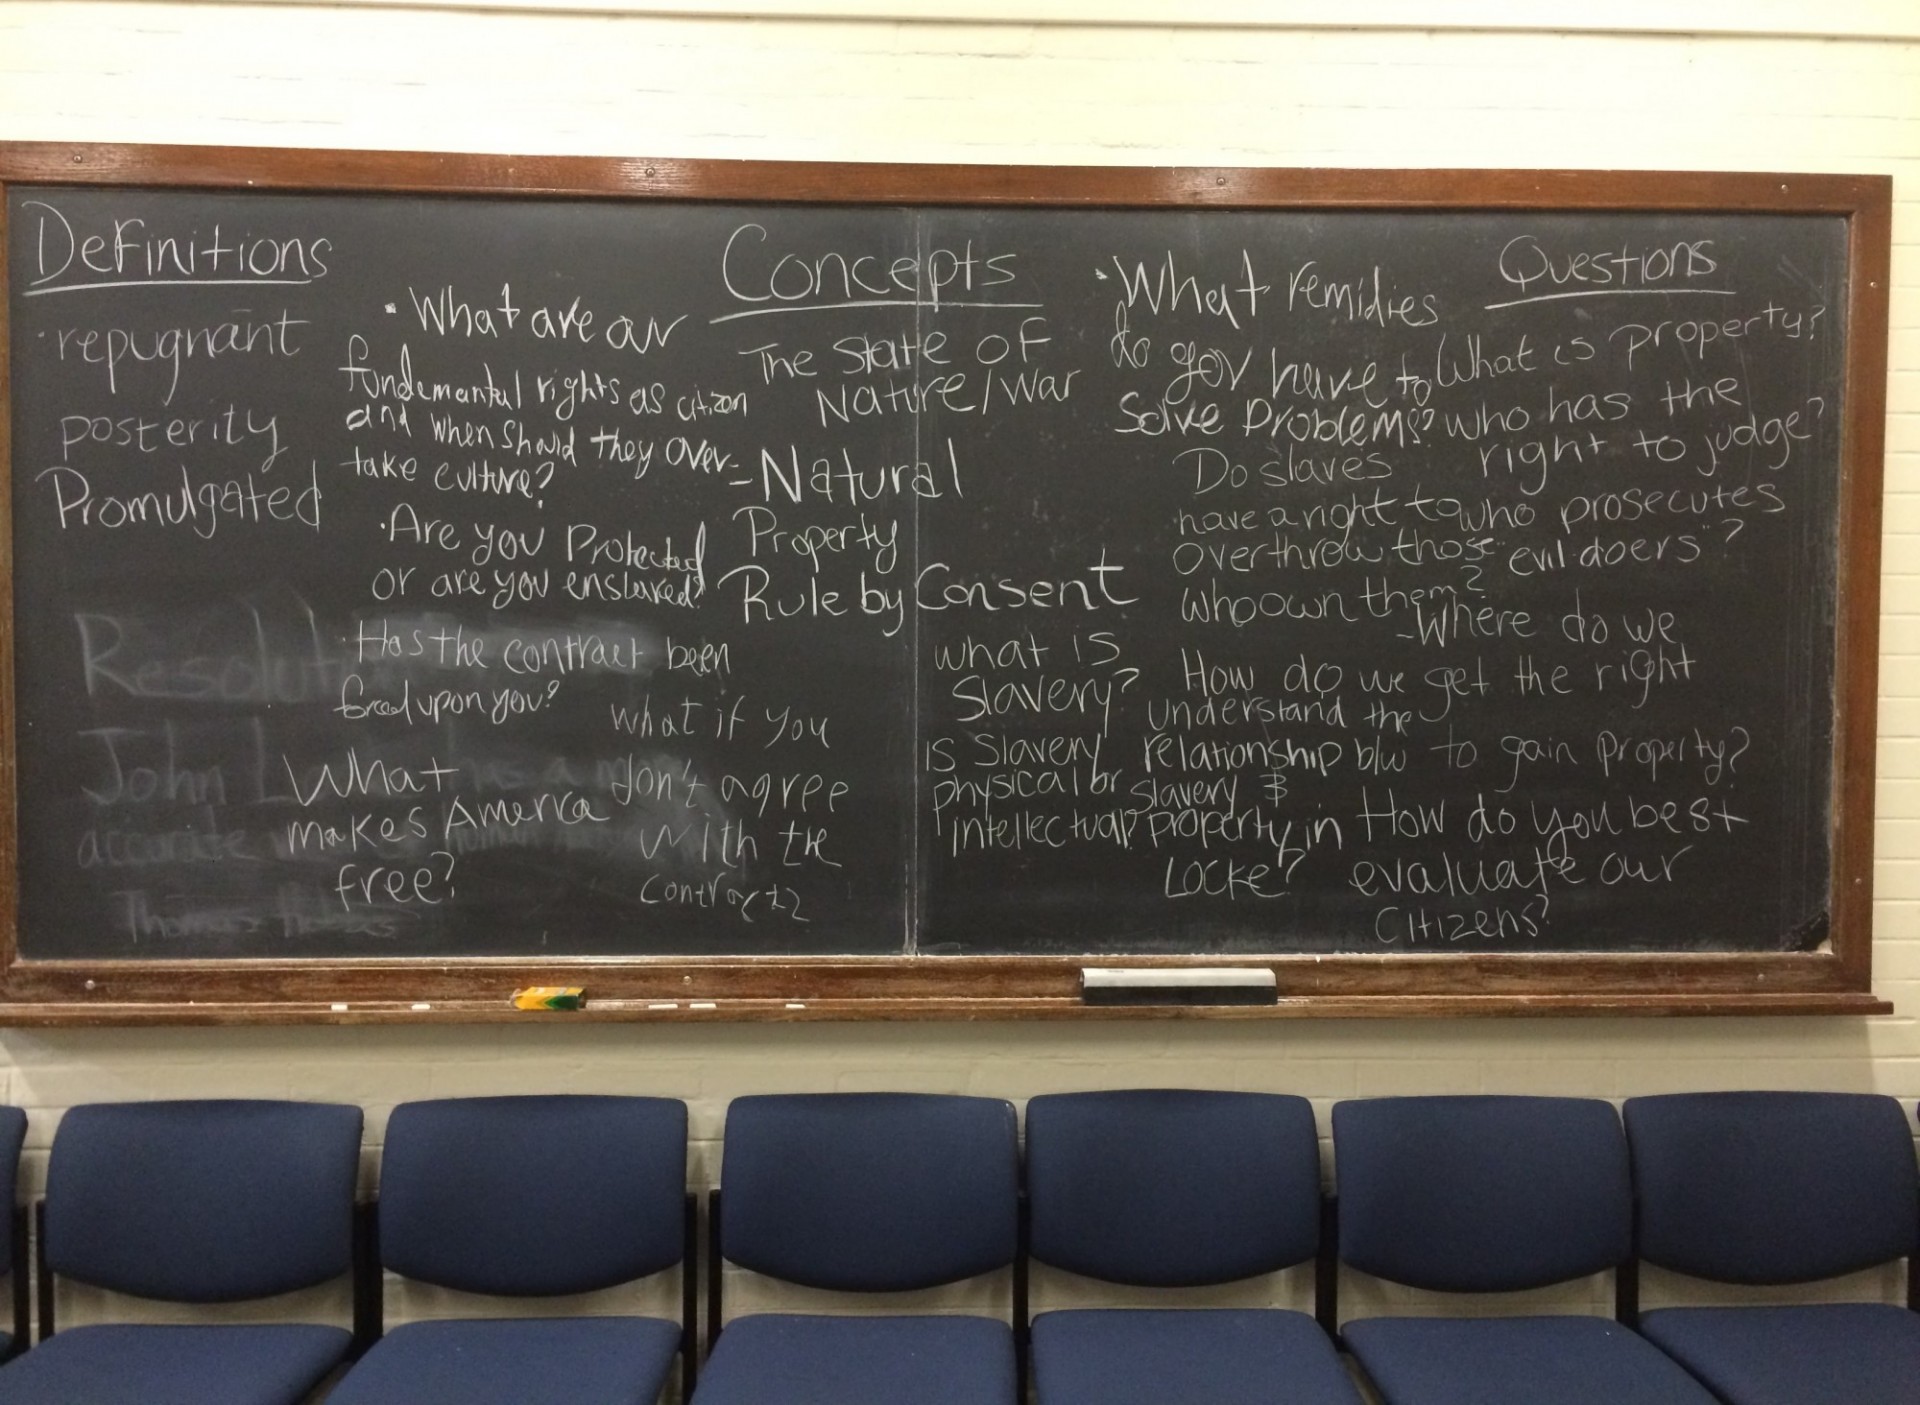 Definitions
repugnant
posterity
Promulgated
• What are our
fundemantal rights as citizen
and when should they over-
take culture?
• Are you Protected
or are you enslaved?
Has the contract been
forced upon you?
What
makes America
free?
what if you
don't agree
with the
contract?
Resolut
John L
has a m
accurate
Thomas Hobbes
Concepts
The State of
Nature/War
- Natural
Property
Rule by Consent
what is
Slavery?
is Slavery
physical or
intellectual?
Questions
• What remidies
do you have to
Solve Problems?
What is property?
Who has the
right to judge?
Do slaves
have a right to
overthrow those
who own them?
who prosecutes
"evil doers"?
- Where do we
get the right
to gain property?
How do we
understand the
relationship b/w
slavery &
property in
Locke?
How do you best
evaluate our
citizens?